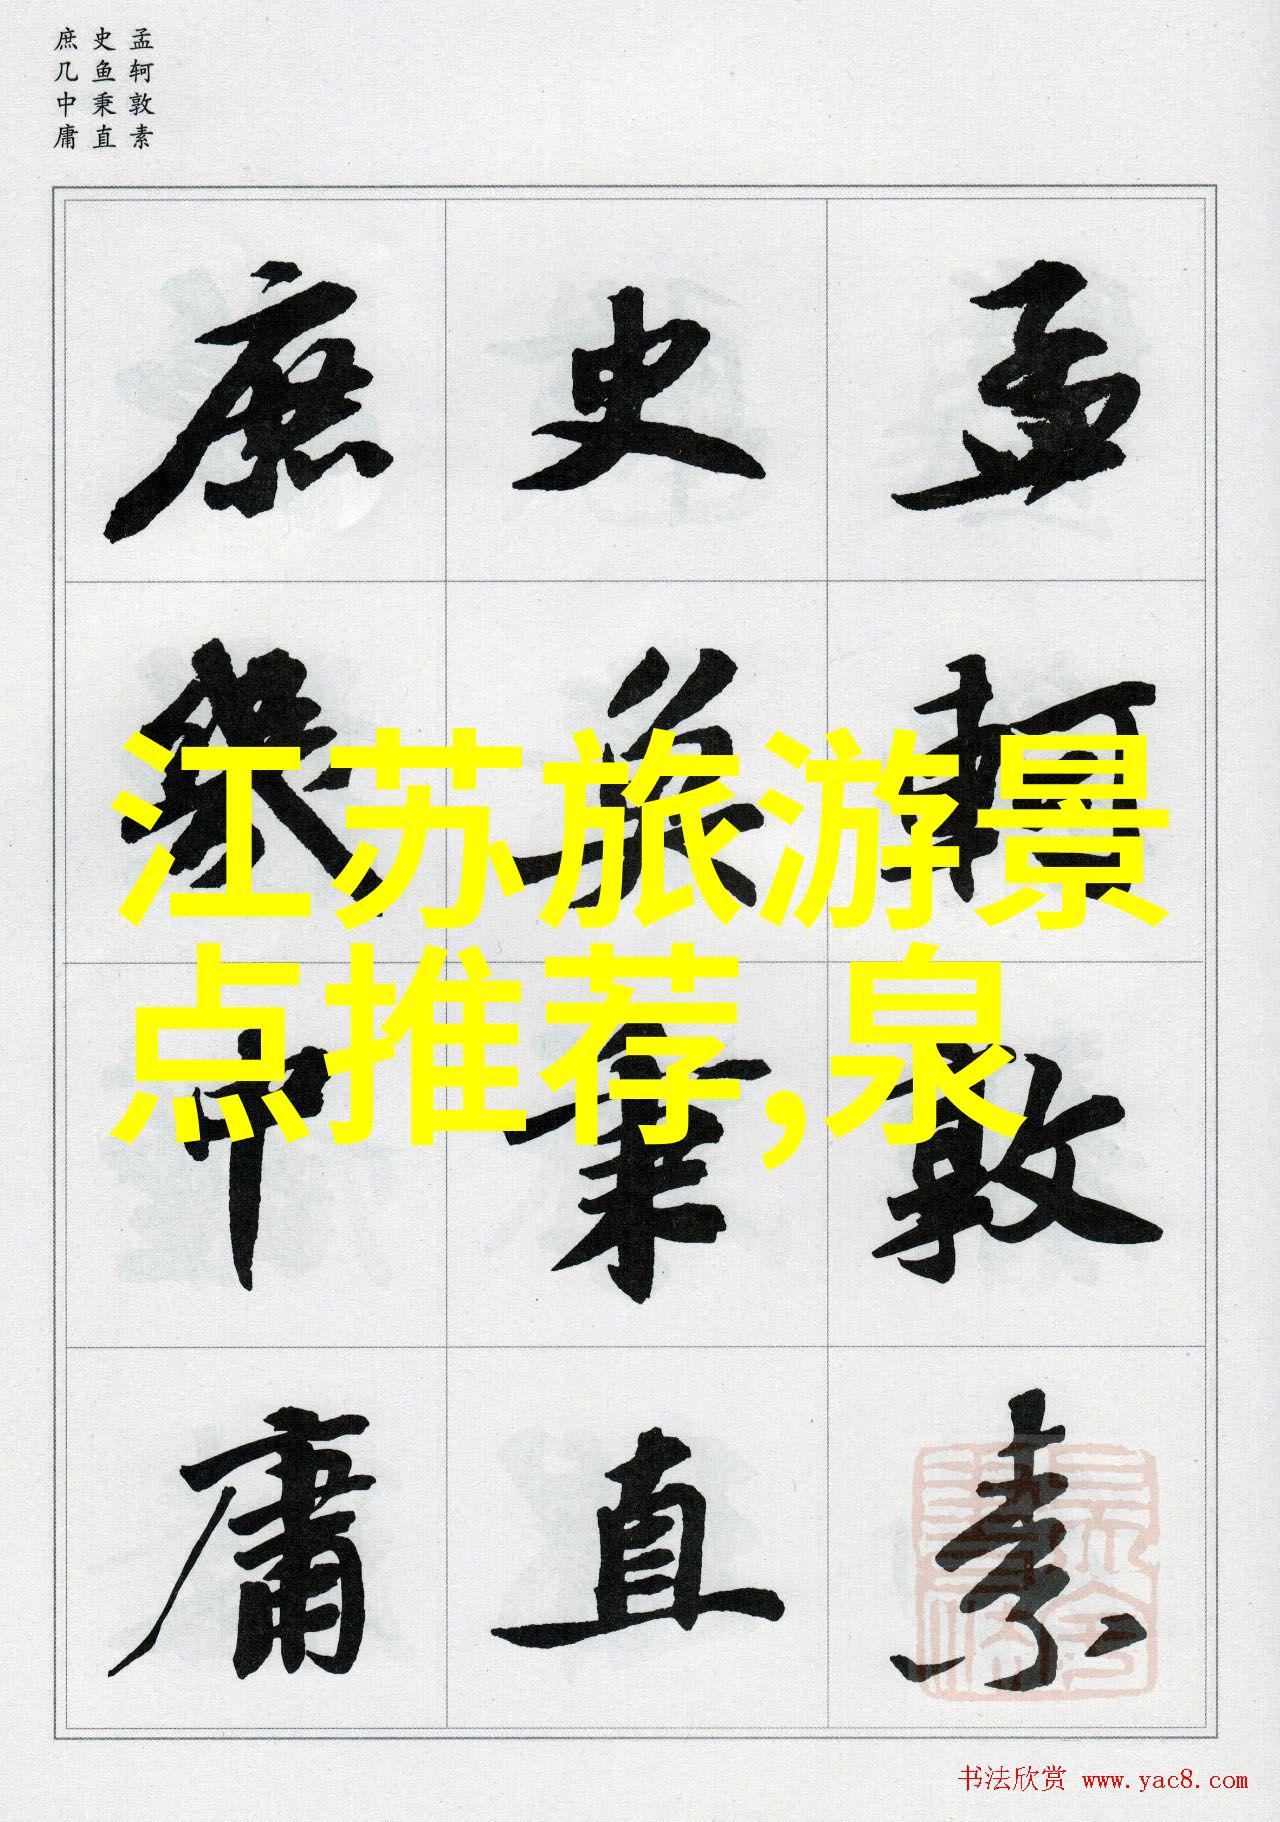 孟轲敦素
史鱼秉直
庶几中庸
孟軻敦素
史魚秉直
庶幾中庸
江苏旅游景
点推荐,泉
书法欣赏 www.yac8.com